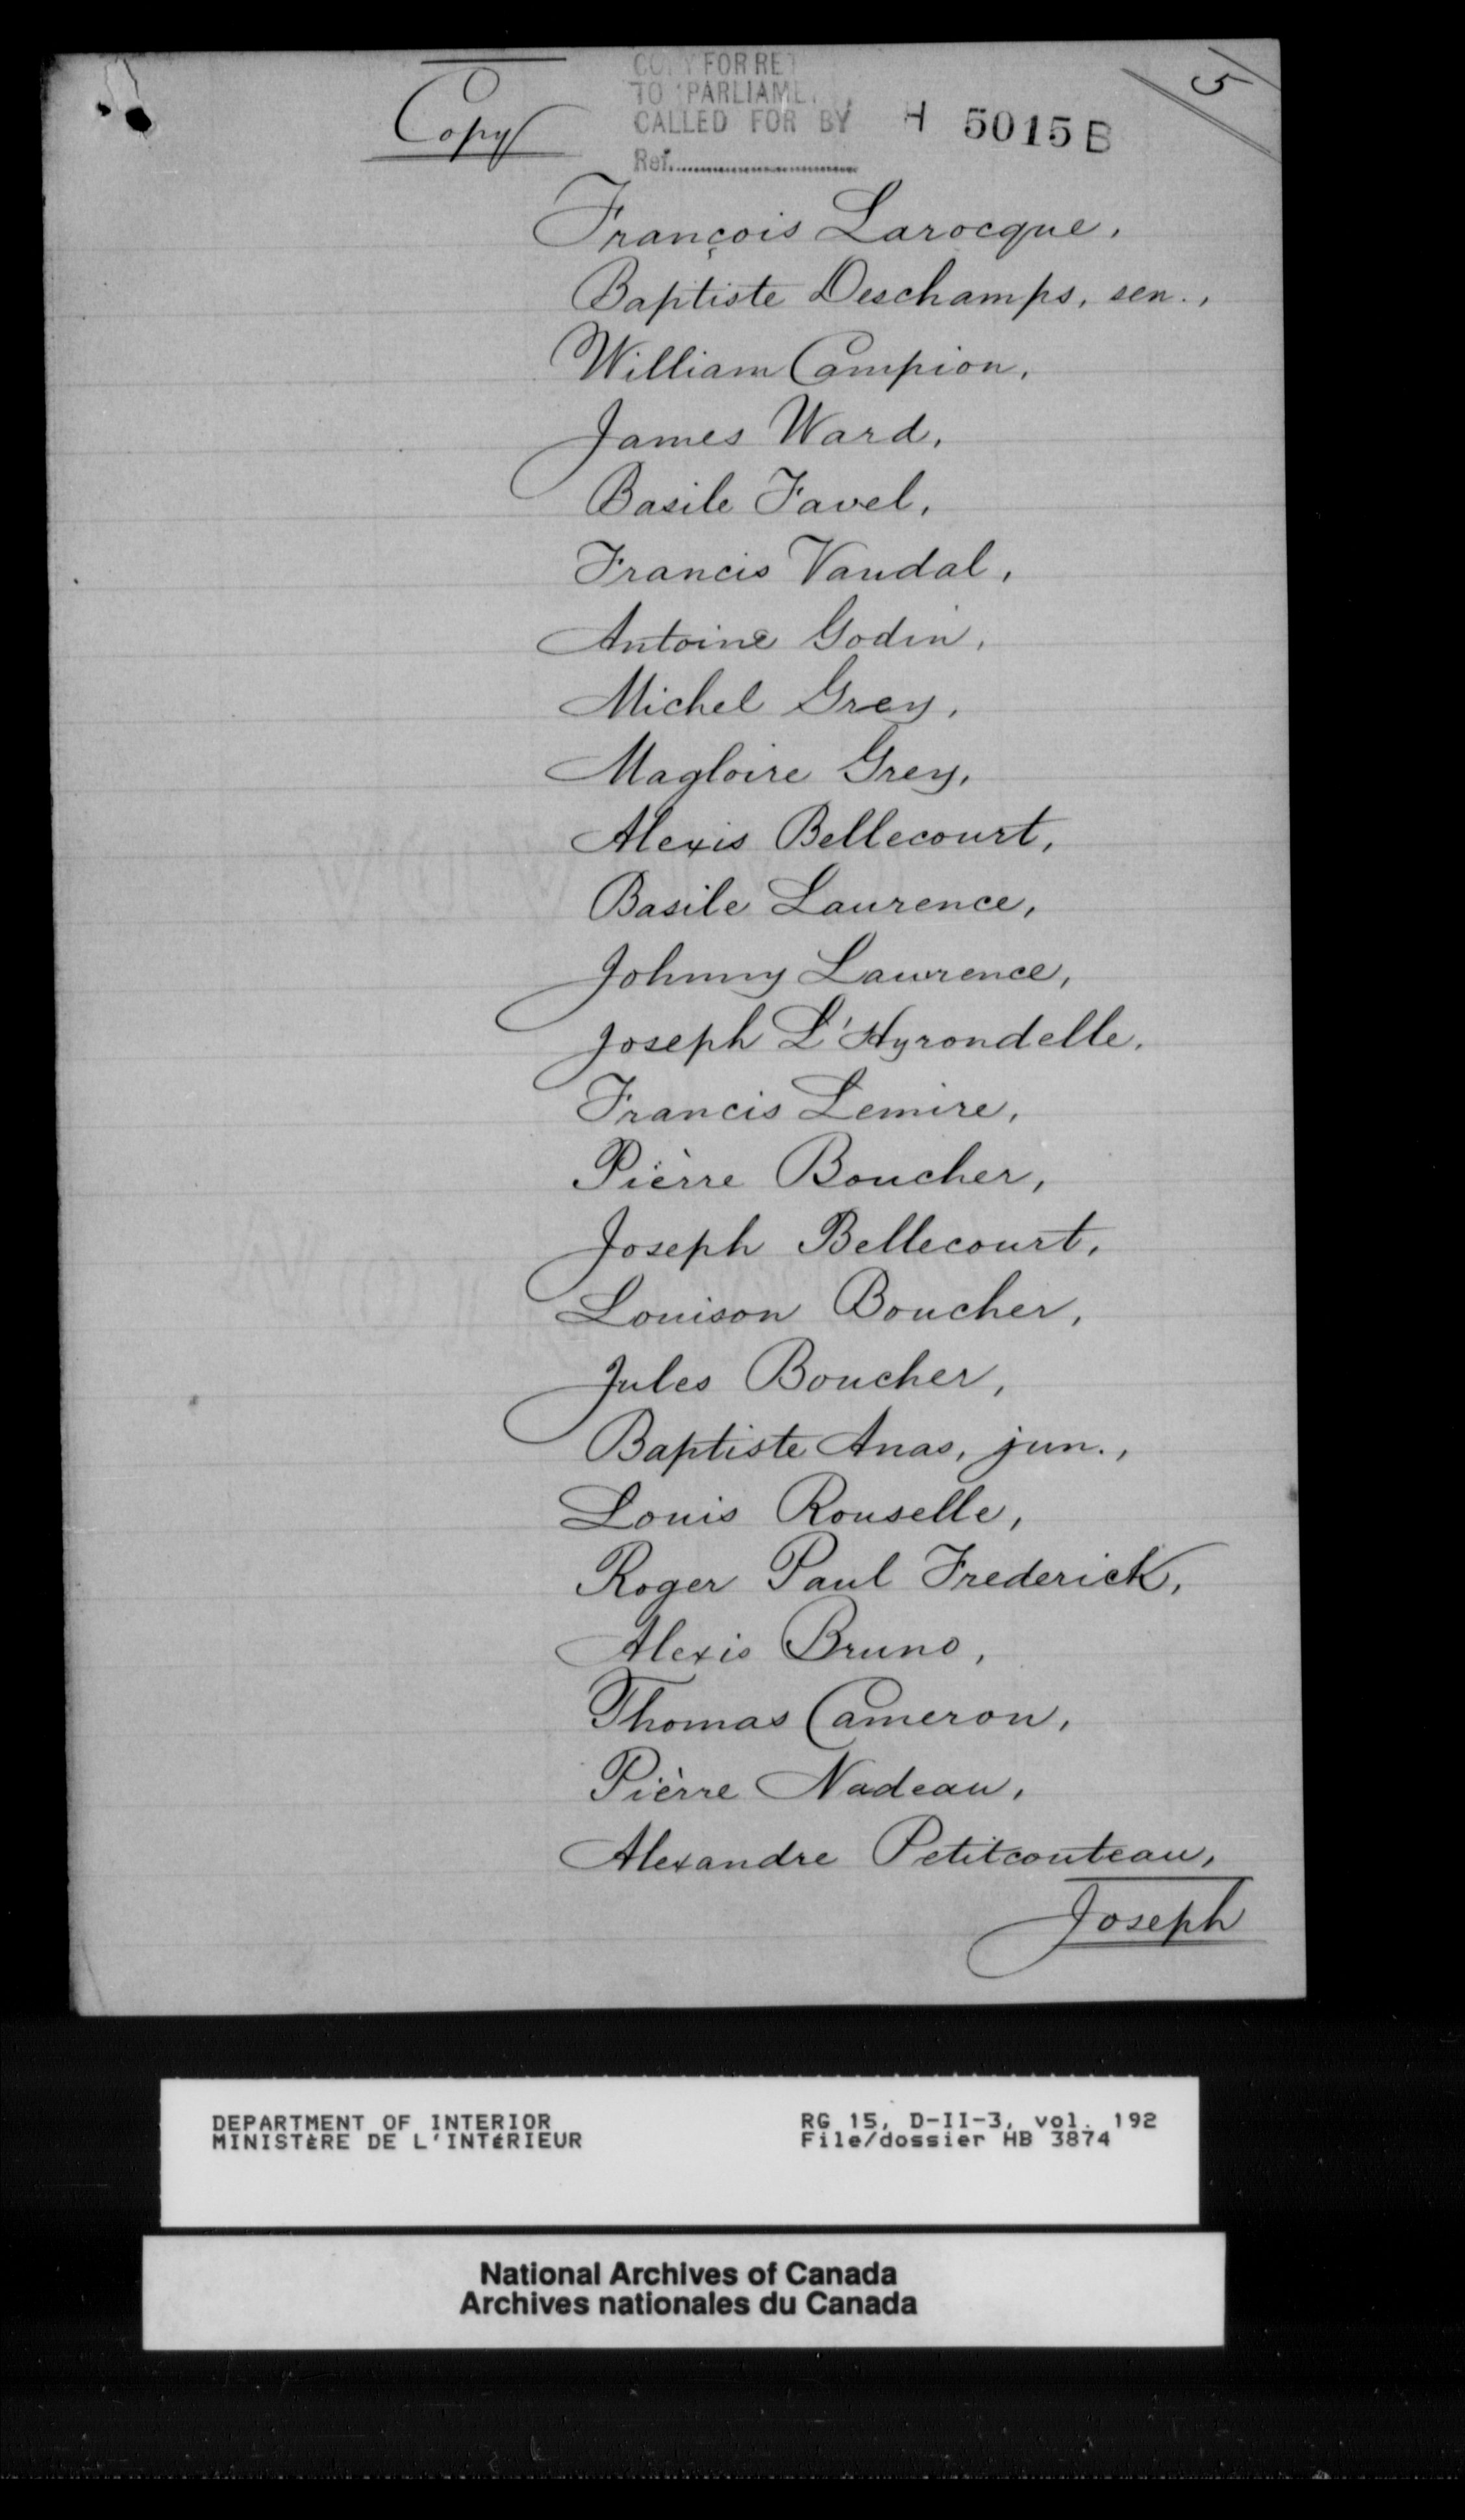 Copy
COPY FOR RET
TO PARLIAME
CALLED FOR BY H 5015 B
Ref.
5
François Larocque,
Baptiste Deschamps, sen.,
William Campion,
James Ward,
Basile Favel,
Francis Vandal,
Antoine Godin,
Michel Grey,
Magloire Grey,
Alexis Bellecourt,
Basile Laurence,
Johnny Lawrence,
Joseph L'Hyrondelle,
Francis Lemire,
Pièrre Boucher,
Joseph Bellecourt,
Louison Boucher,
Jules Boucher,
Baptiste Anas, jun.,
Louis Rouselle,
Roger Paul Frederick,
Alexis Bruno,
Thomas Cameron,
Pièrre Nadeau,
Alexandre Petitcouteau,
Joseph
DEPARTMENT OF INTERIOR
MINISTÈRE DE L'INTÉRIEUR
RG 15, D-II-3, vol. 192
File/dossier HB 3874
National Archives of Canada
Archives nationales du Canada